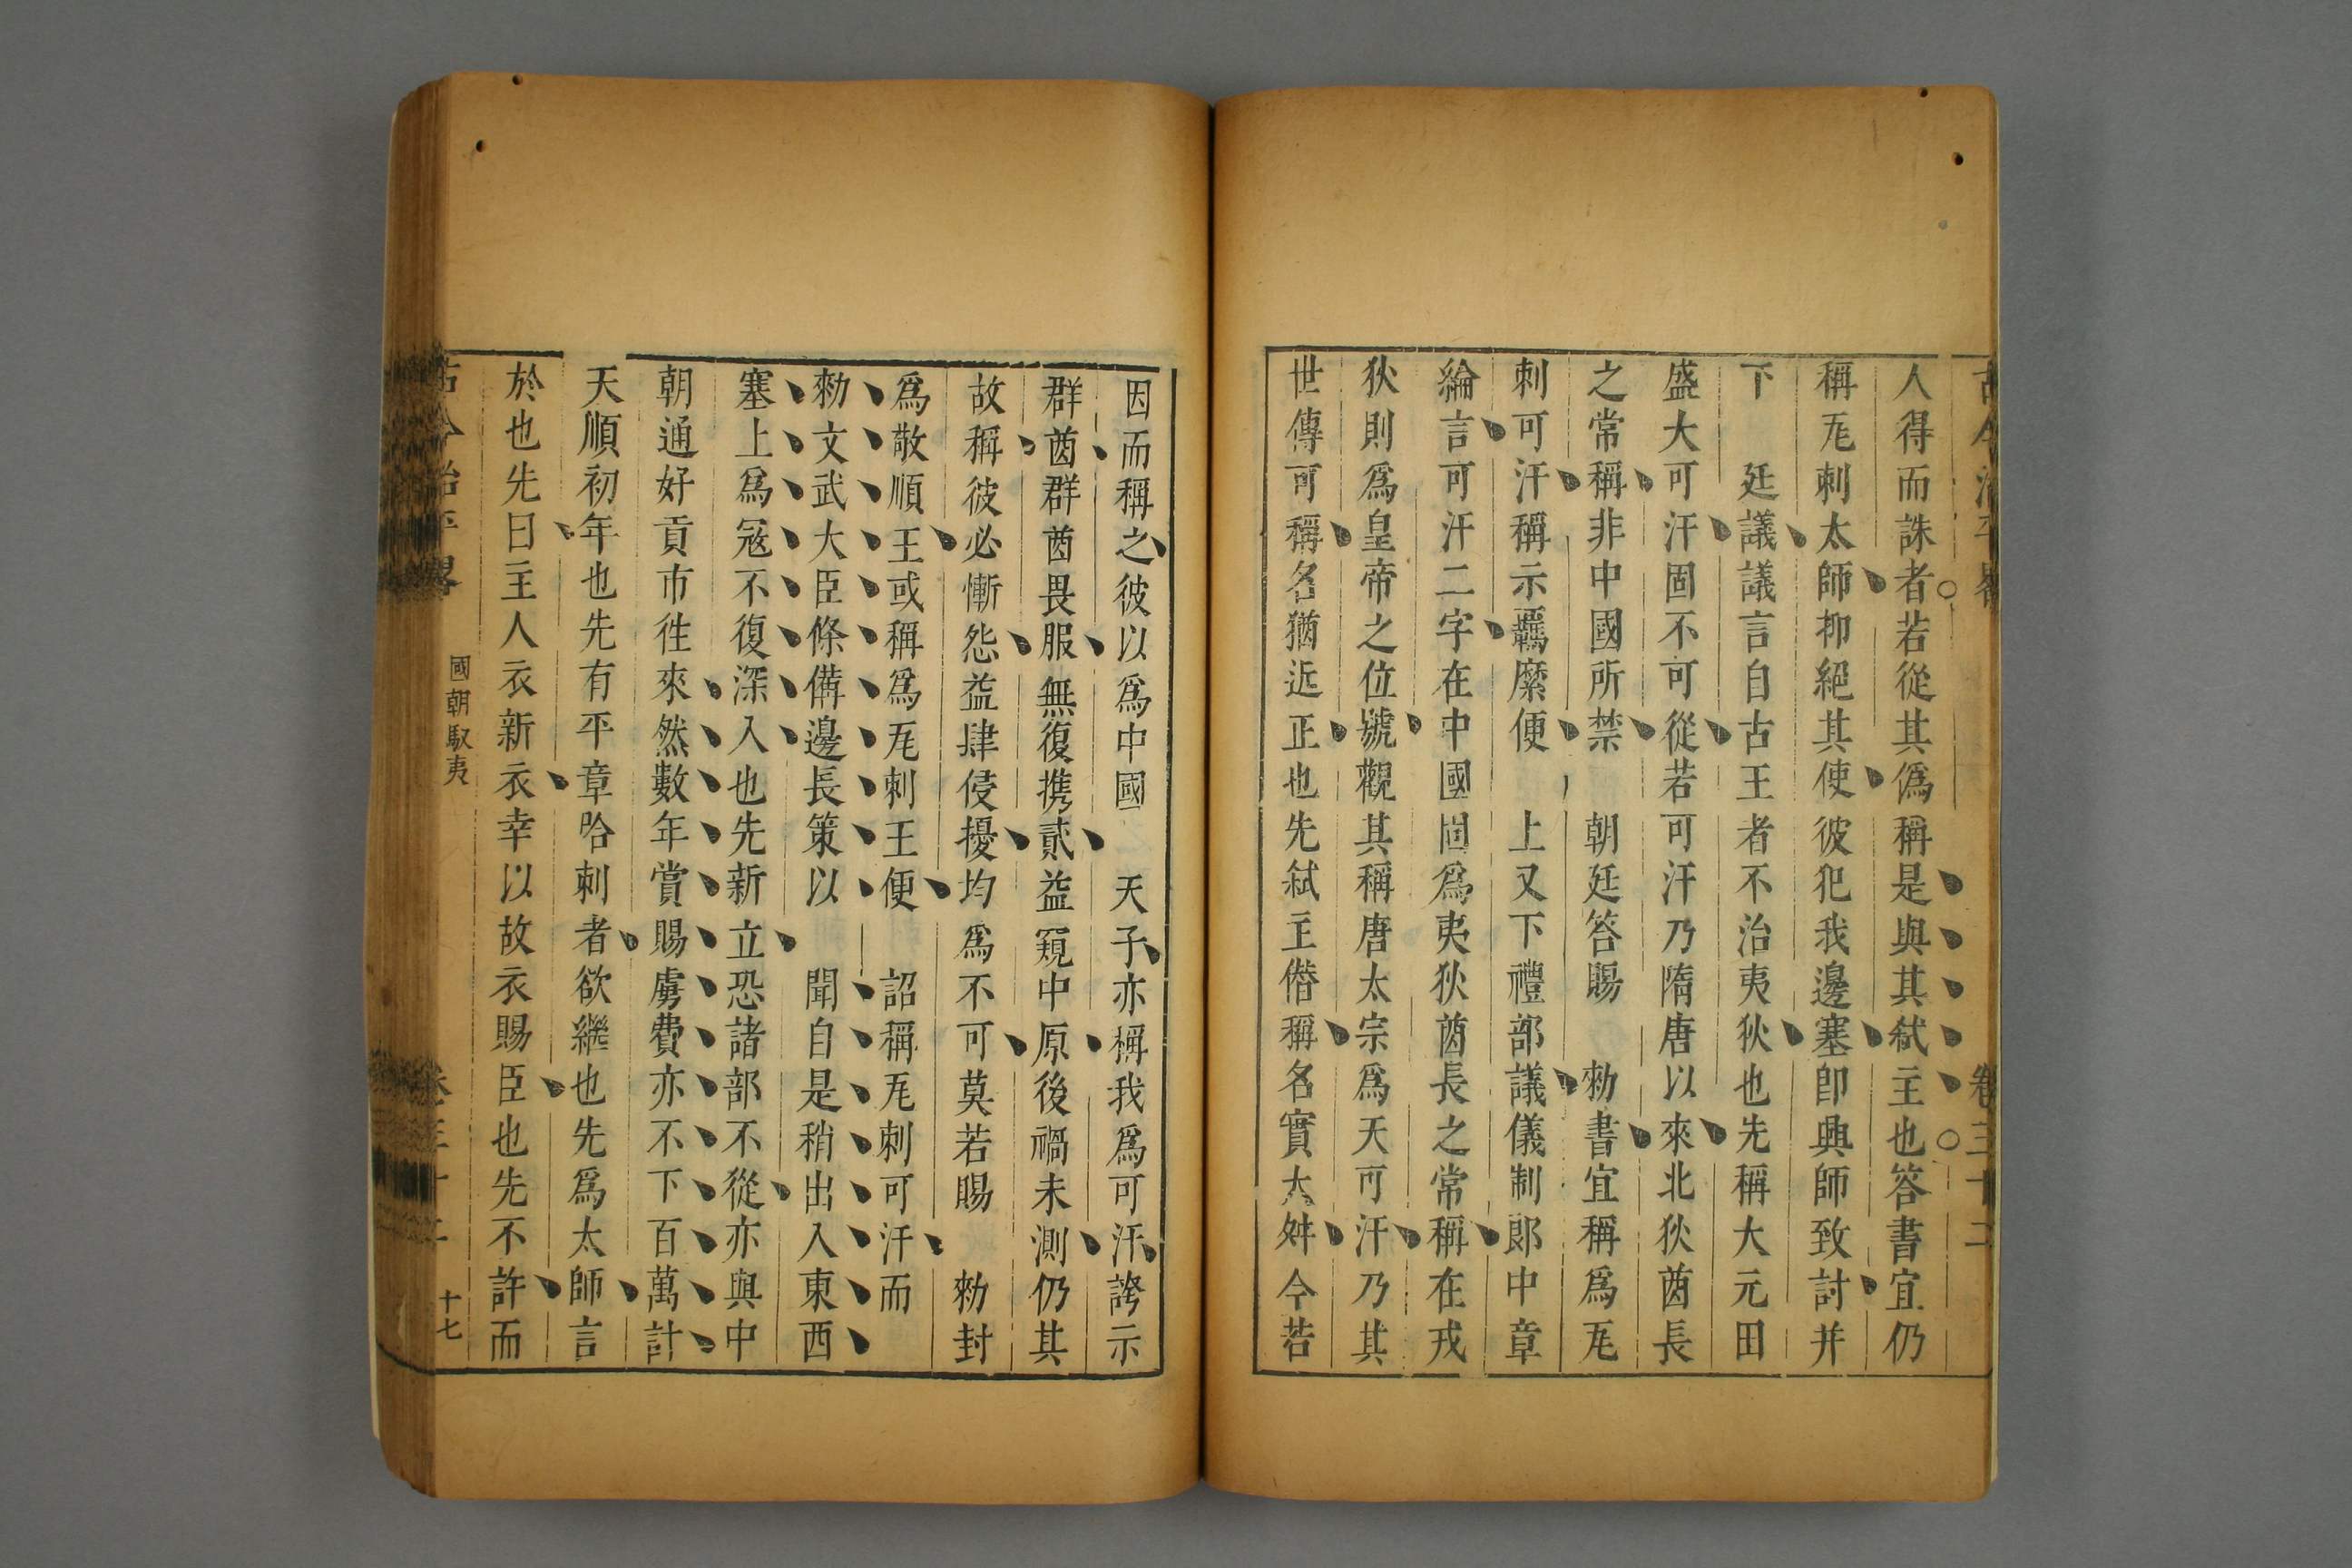 古今治平畧 卷三十二
人得而誅者若從其僞稱是與其弑主也答書宜仍
稱瓦剌太師抑絕其使彼犯我邊塞卽興師致討并
下 廷議議言自古王者不治夷狄也先稱大元田
盛大可汗固不可從若可汗乃隋唐以來北狄酋長
之常稱非中國所禁 朝廷答賜 勑書宜稱爲瓦
剌可汗稱示羈縻便 上又下禮部議儀制郞中章
綸言可汗二字在中國固爲夷狄酋長之常稱在戎
狄則爲皇帝之位號觀其稱唐太宗爲天可汗乃其
世傳可稱名猶近正也先弑主僭稱名實大舛今若
因而稱之彼以爲中國 天子亦稱我爲可汗誇示
群酋群酋畏服無復携貳益窺中原後禍未測仍其
故稱彼必慚怨益肆侵擾均爲不可莫若賜 勑封
爲敬順王或稱爲瓦剌王便 詔稱瓦剌可汗而
勑文武大臣條備邊長策以 聞自是稍出入東西
塞上爲寇不復深入也先新立恐諸部不從亦與中
朝通好貢市徃來然數年賞賜虜費亦不下百萬計
天順初年也先有平章哈剌者欲繼也先爲太師言
於也先曰主人衣新衣幸以故衣賜臣也先不許而
古今治平畧 國朝馭夷 卷三十二 十七